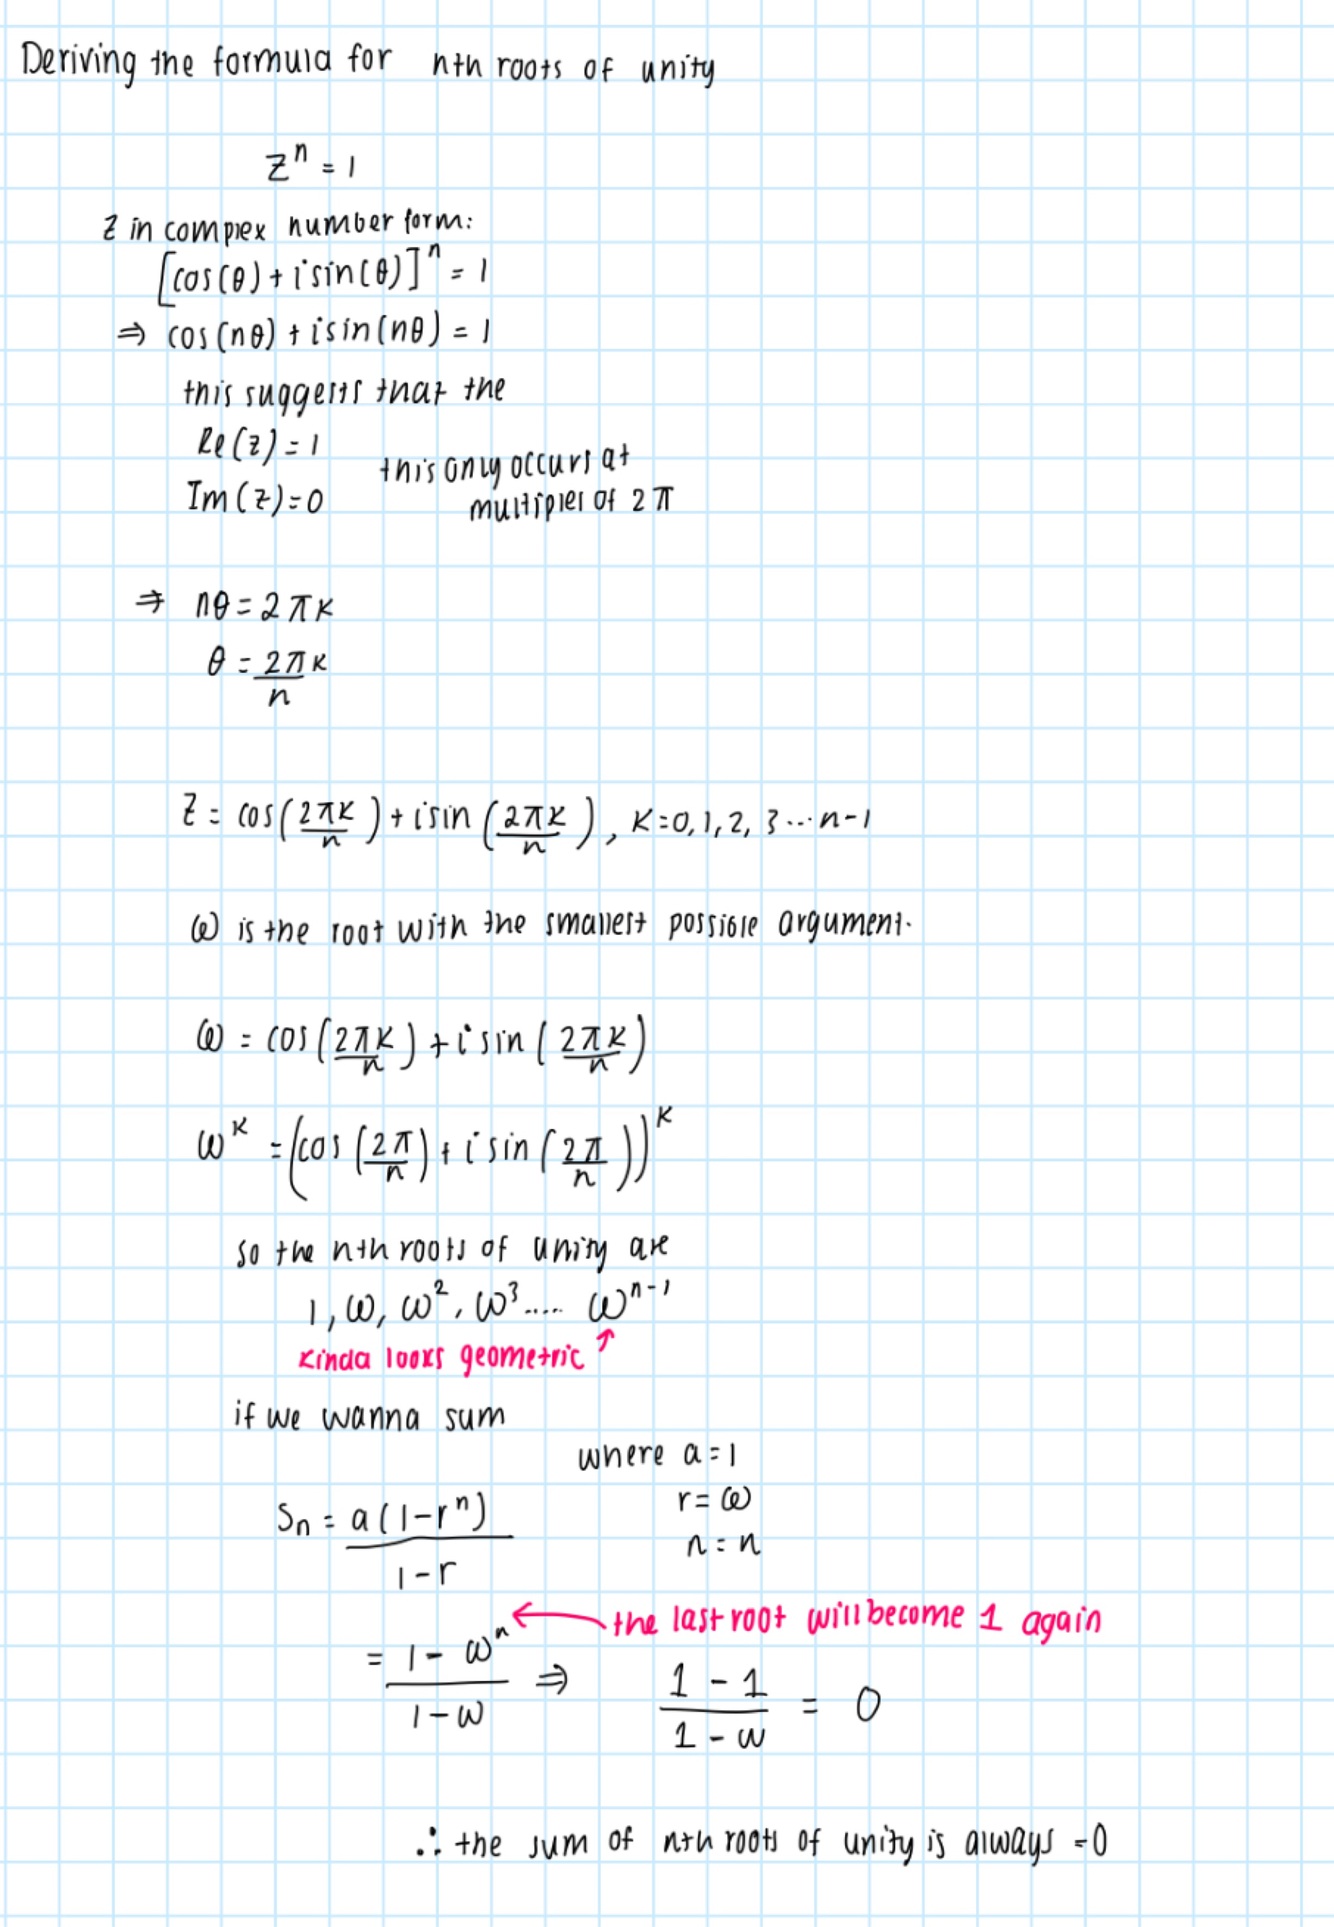 Deriving the formula for nth roots of unity
zⁿ = 1
z in complex number form:
[cos(θ) + i sin(θ)]ⁿ = 1
⇒ cos(nθ) + i sin(nθ) = 1
this suggests that the
Re(z) = 1
Im(z) = 0
this only occurs at
multiples of 2π
⇒ nθ = 2πk
θ = 2πk/n
z = cos(2πk/n) + i sin(2πk/n), k = 0, 1, 2, 3 ... n-1
ω is the root with the smallest possible argument.
ω = cos(2πk/n) + i sin(2πk/n)
ω^k = (cos(2π/n) + i sin(2π/n))^k
so the nth roots of unity are
1, ω, ω², ω³ ..... ω^(n-1)
kinda looks geometric ↑
if we wanna sum
where a = 1
r = ω
n = n
Sn = a(1-rⁿ)/1-r
= 1 - ωⁿ/1-ω ⇒ 1 - 1/1 - ω = 0
← the last root will become 1 again
∴ the sum of nth roots of unity is always = 0